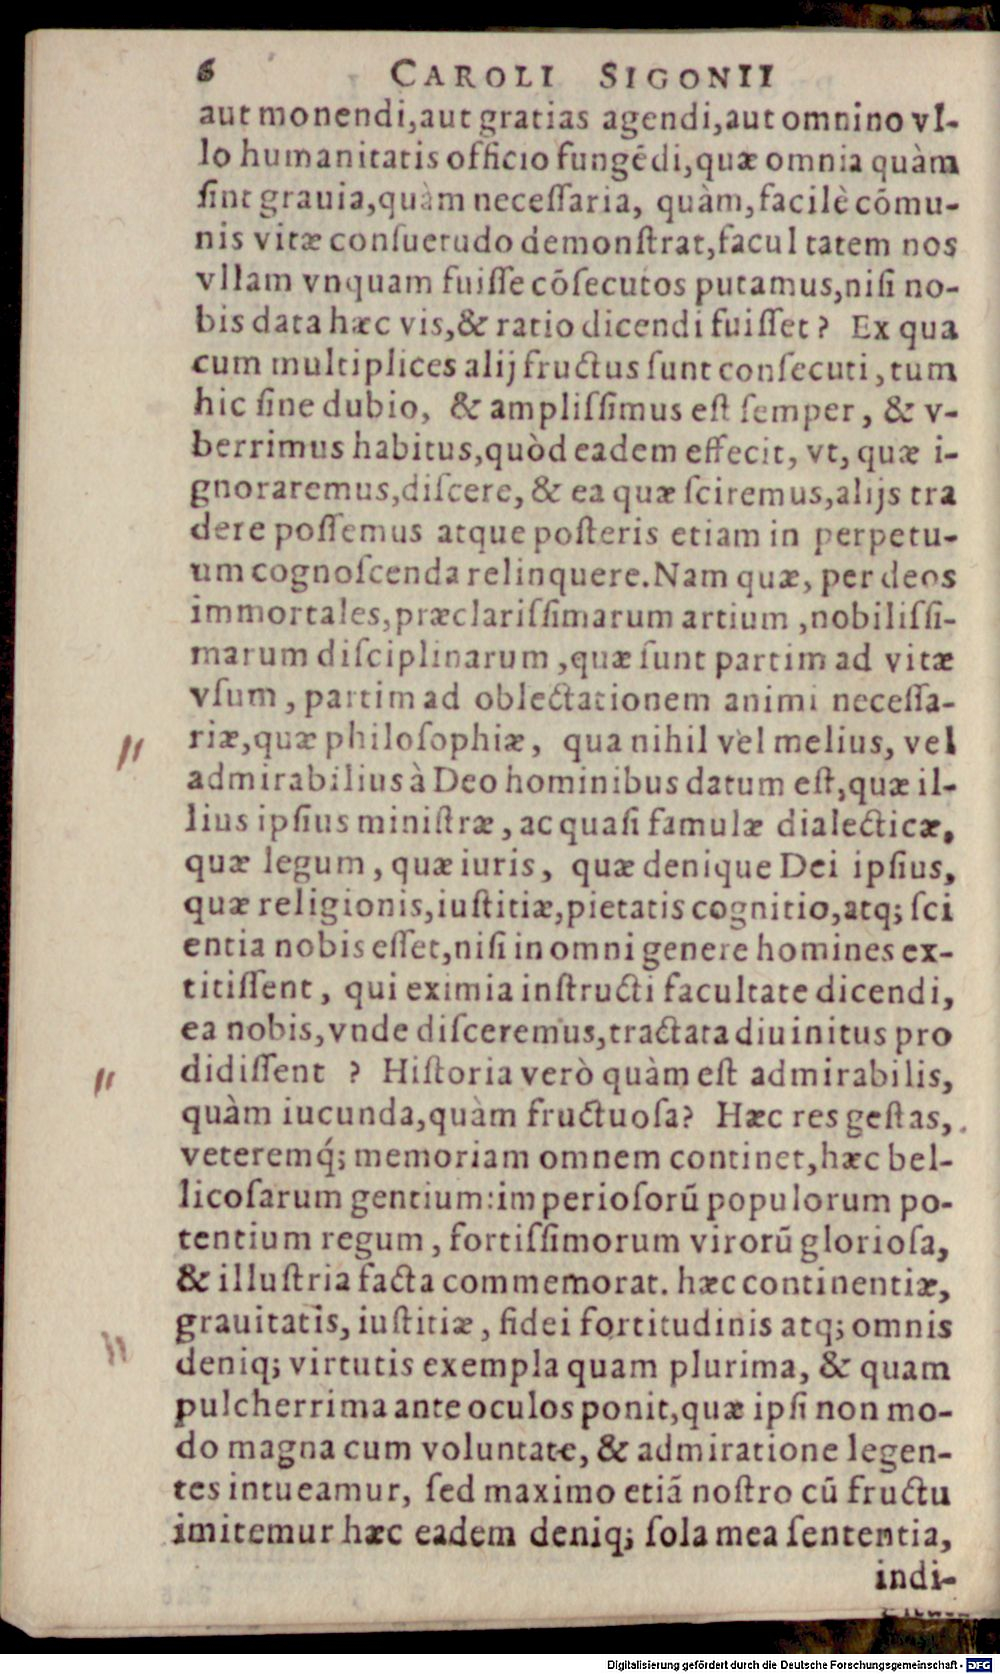 6 CAROLI SIGONII
aut monendi,aut gratias agendi,aut omnino vl-
lo humanitatis officio fungẽdi,quæ omnia quàm
ſint grauia,quàm neceſſaria, quàm,facilè cõmu-
nis vitæ conſuetudo demonſtrat,facul tatem nos
vllam vnquam fuiſſe cõſecutos putamus,niſi no-
bis data hæc vis,& ratio dicendi fuiſſet? Ex qua
cum multiplices alij fructus ſunt conſecuti, tum
hic ſine dubio, & ampliſſimus eſt ſemper, & v-
berrimus habitus,quòd eadem effecit, vt, quæ i-
gnoraremus,diſcere, & ea quæ ſciremus,alijs tra
dere poſſemus atque poſteris etiam in perpetu-
um cognoſcenda relinquere.Nam quæ, per deos
immortales,præclariſſimarum artium ,nobiliſſi-
marum diſciplinarum ,quæ ſunt partim ad vitæ
vſum, partim ad oblectationem animi neceſſa-
riæ,quæ philoſophiæ, qua nihil vel melius, vel
admirabilius à Deo hominibus datum eſt,quæ il-
lius ipſius miniſtræ, ac quaſi famulæ dialecticæ,
quæ legum, quæ iuris, quæ denique Dei ipſius,
quæ religionis,iuſtitiæ,pietatis cognitio,atq; ſci
entia nobis eſſet,niſi in omni genere homines ex-
titiſſent, qui eximia inſtructi facultate dicendi,
ea nobis,vnde diſceremus,tractata diuinitus pro
didiſſent ? Hiſtoria verò quàm eſt admirabilis,
quàm iucunda,quàm fructuoſa? Hæc res geſtas,
veteremq́; memoriam omnem continet,hæc bel-
licoſarum gentium:imperioſorũ populorum po-
tentium regum, fortiſſimorum virorũ glorioſa,
& illuſtria facta commemorat. hæc continentiæ,
grauitatis, iuſtitiæ, fidei fortitudinis atq; omnis
deniq; virtutis exempla quam plurima, & quam
pulcherrima ante oculos ponit,quæ ipſi non mo-
do magna cum voluntate, & admiratione legen-
tes intueamur, ſed maximo etiã noſtro cũ fructu
imitemur hæc eadem deniq; ſola mea ſententia,
indi-
Digitalisierung gefördert durch die Deutsche Forschungsgemeinschaft - DFG